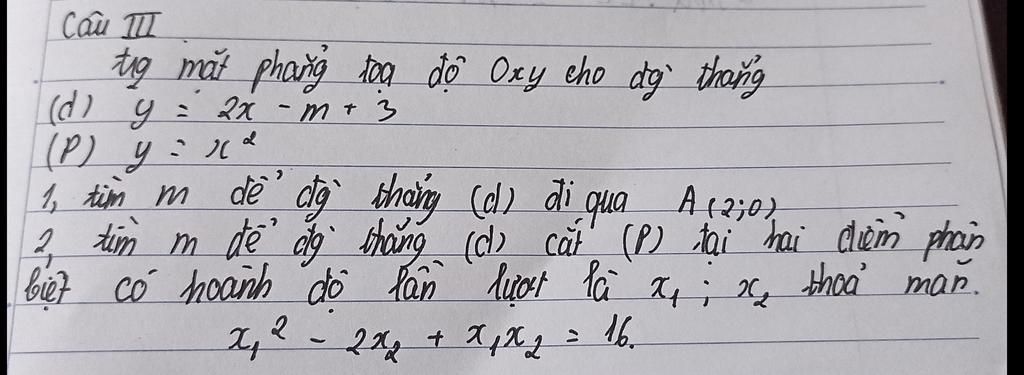 Câu III
trg mặt phẳng toạ độ Oxy cho đg` thẳng
(d) y = 2x - m + 3
(P) y = x²
1, tìm m để đg` thẳng (d) đi qua A(2;0)
2, tìm m để đg` thẳng (d) cắt (P) tại hai điểm phân
biệt có hoành độ lần lượt là x₁ ; x₂ thoả mãn.
x₁² - 2x₂ + x₁x₂ = 16.